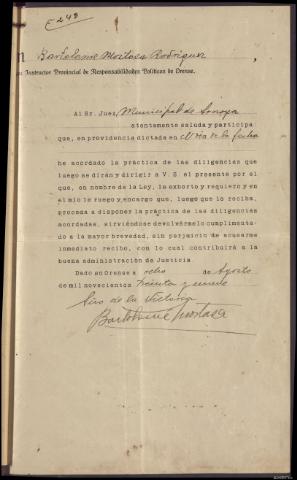 E 248
n Bartolomé Mostaza Rodríguez
Instructor Provincial de Responsabilidades Políticas de Orense.
Al Sr. Juez, Municipal de
atentamente saluda y participa
que, en providencia dictada en de la fecha
he acordado la práctica de las diligencias que
luego se dirán y dirigir a V. S. el presente por el
que, en nombre de la Ley, le exhorto y requiero y en
el mío le ruego y encargo que, luego que lo reciba,
proceda a disponer la práctica de las diligencias
acordadas, sirviéndose devolvérmelo cumplimenta-
do a la mayor brevedad, sin perjuicio de acusarme
inmediato recibo, con lo cual contribuirá a la
buena administración de Justicia.
Dado en Orense a ocho de Agosto
de mil novecientos treinta y nueve
Año de la Victoria
Bartolomé Mostaza